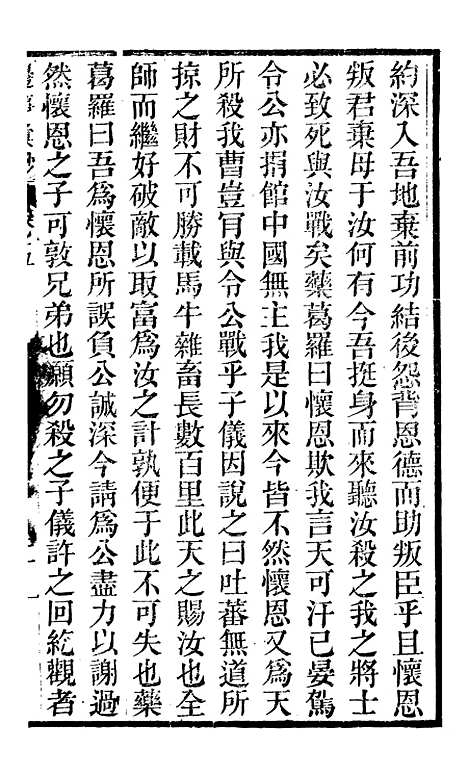 約深入吾地棄前功結後怨背恩德而助叛臣乎且懷恩
叛君棄母于汝何有今吾挺身而來聽汝殺之我之將士
必致死與汝戰矣藥葛羅曰懷恩欺我言天可汗已晏駕
令公亦捐館中國無主我是以來今皆不然懷恩又爲天
所殺我曹豈肎與令公戰乎子儀因說之曰吐蕃無道所
掠之財不可勝載馬牛雜畜長數百里此天之賜汝也全
師而繼好破敵以取富爲汝之計孰便于此不可失也藥
葛羅曰吾爲懷恩所誤負公誠深今請爲公盡力以謝過
然懷恩之子可敦兄弟也願勿殺之子儀許之回紇觀者